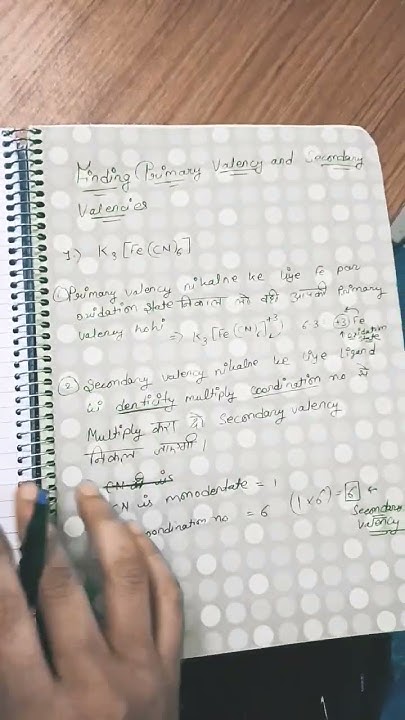 Finding Primary Valency and Secondary
Valencies
1.) K₃[Fe(CN)₆]
① Primary valency nikalne ke liye Fe par
oxidation state निकाल लो वही आपकी Primary
valency hohi ⇒ K₃[Fe(CN)₆] +3 6-3 +3 Fe
oxidation
state
② Secondary valency nikalne ke liye ligand
ki denticity multiply coordination no से
Multiply करा दो Secondary valency
निकल जाएगी।
CN is monodentate = 1
oordination no = 6 (1×6) = 6
Secondary
valency